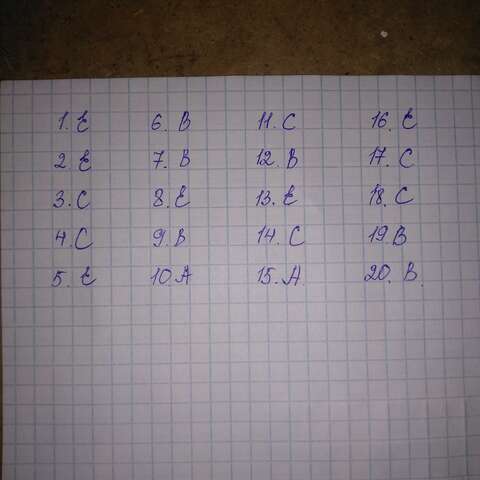 1. E 6. B 11. C 16. E
2. E 7. B 12. B 17. C
3. C 8. E 13. E 18. C
4. C 9. B 14. C 19. B
5. E 10. A 15. A. 20. B.